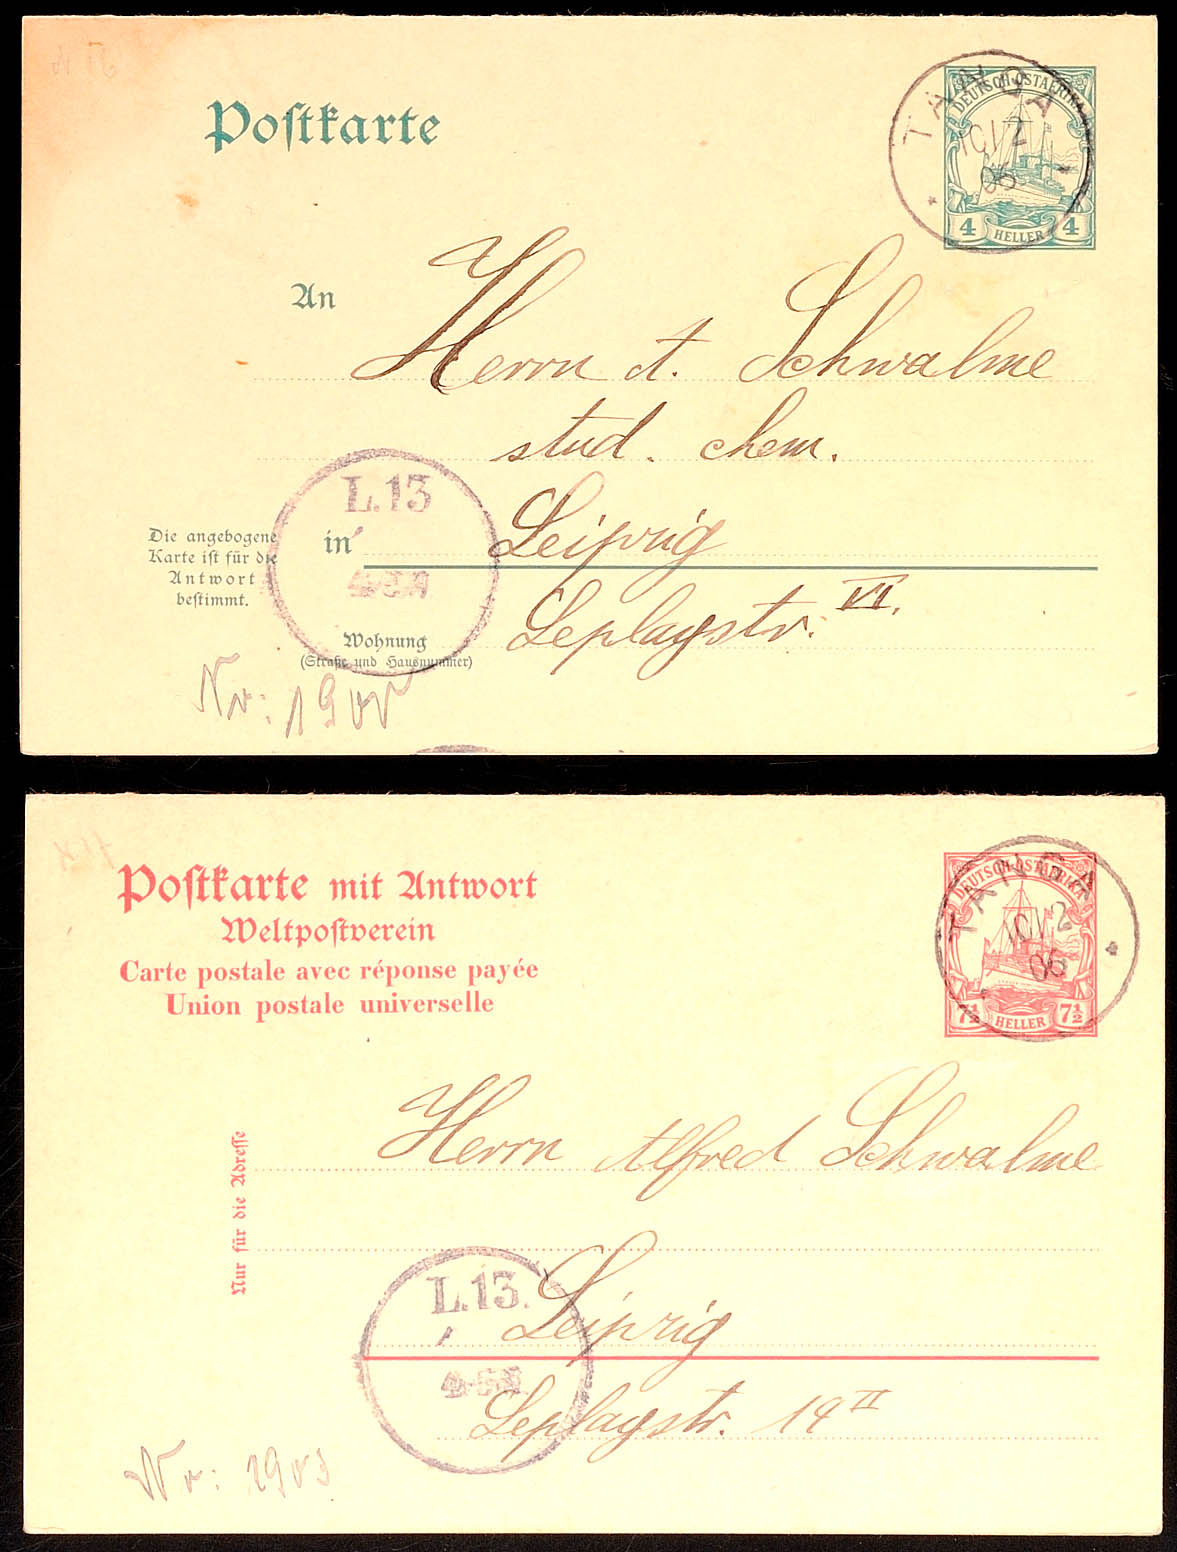 Postkarte
TANGA
10/2
06
DEUTSCH-OSTAFRIKA
4 HELLER 4
An
Herrn A. Schwalme
stud. chem.
L.13
Die angebogene
Karte ist für die
Antwort
bestimmt.
in Leipzig
Leplaystr. VI.
Wohnung
(Straße und Hausnummer)
Nr:
Postkarte mit Antwort
Weltpostverein
Carte postale avec réponse payée
Union postale universelle
TANGA
10/2
06
DEUTSCH-OSTAFRIKA
7½ HELLER 7½
Nur für die Adresse
Herrn Alfred Schwalme
L.13.
Leipzig
Leplaystr. 14 II
Nr: